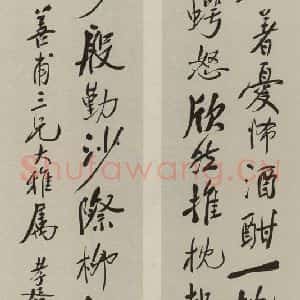 著憂怖酒酣一
怒欣然推枕
殷勤沙際柳
善甫三兄大雅属 孝
Shufawang.cn